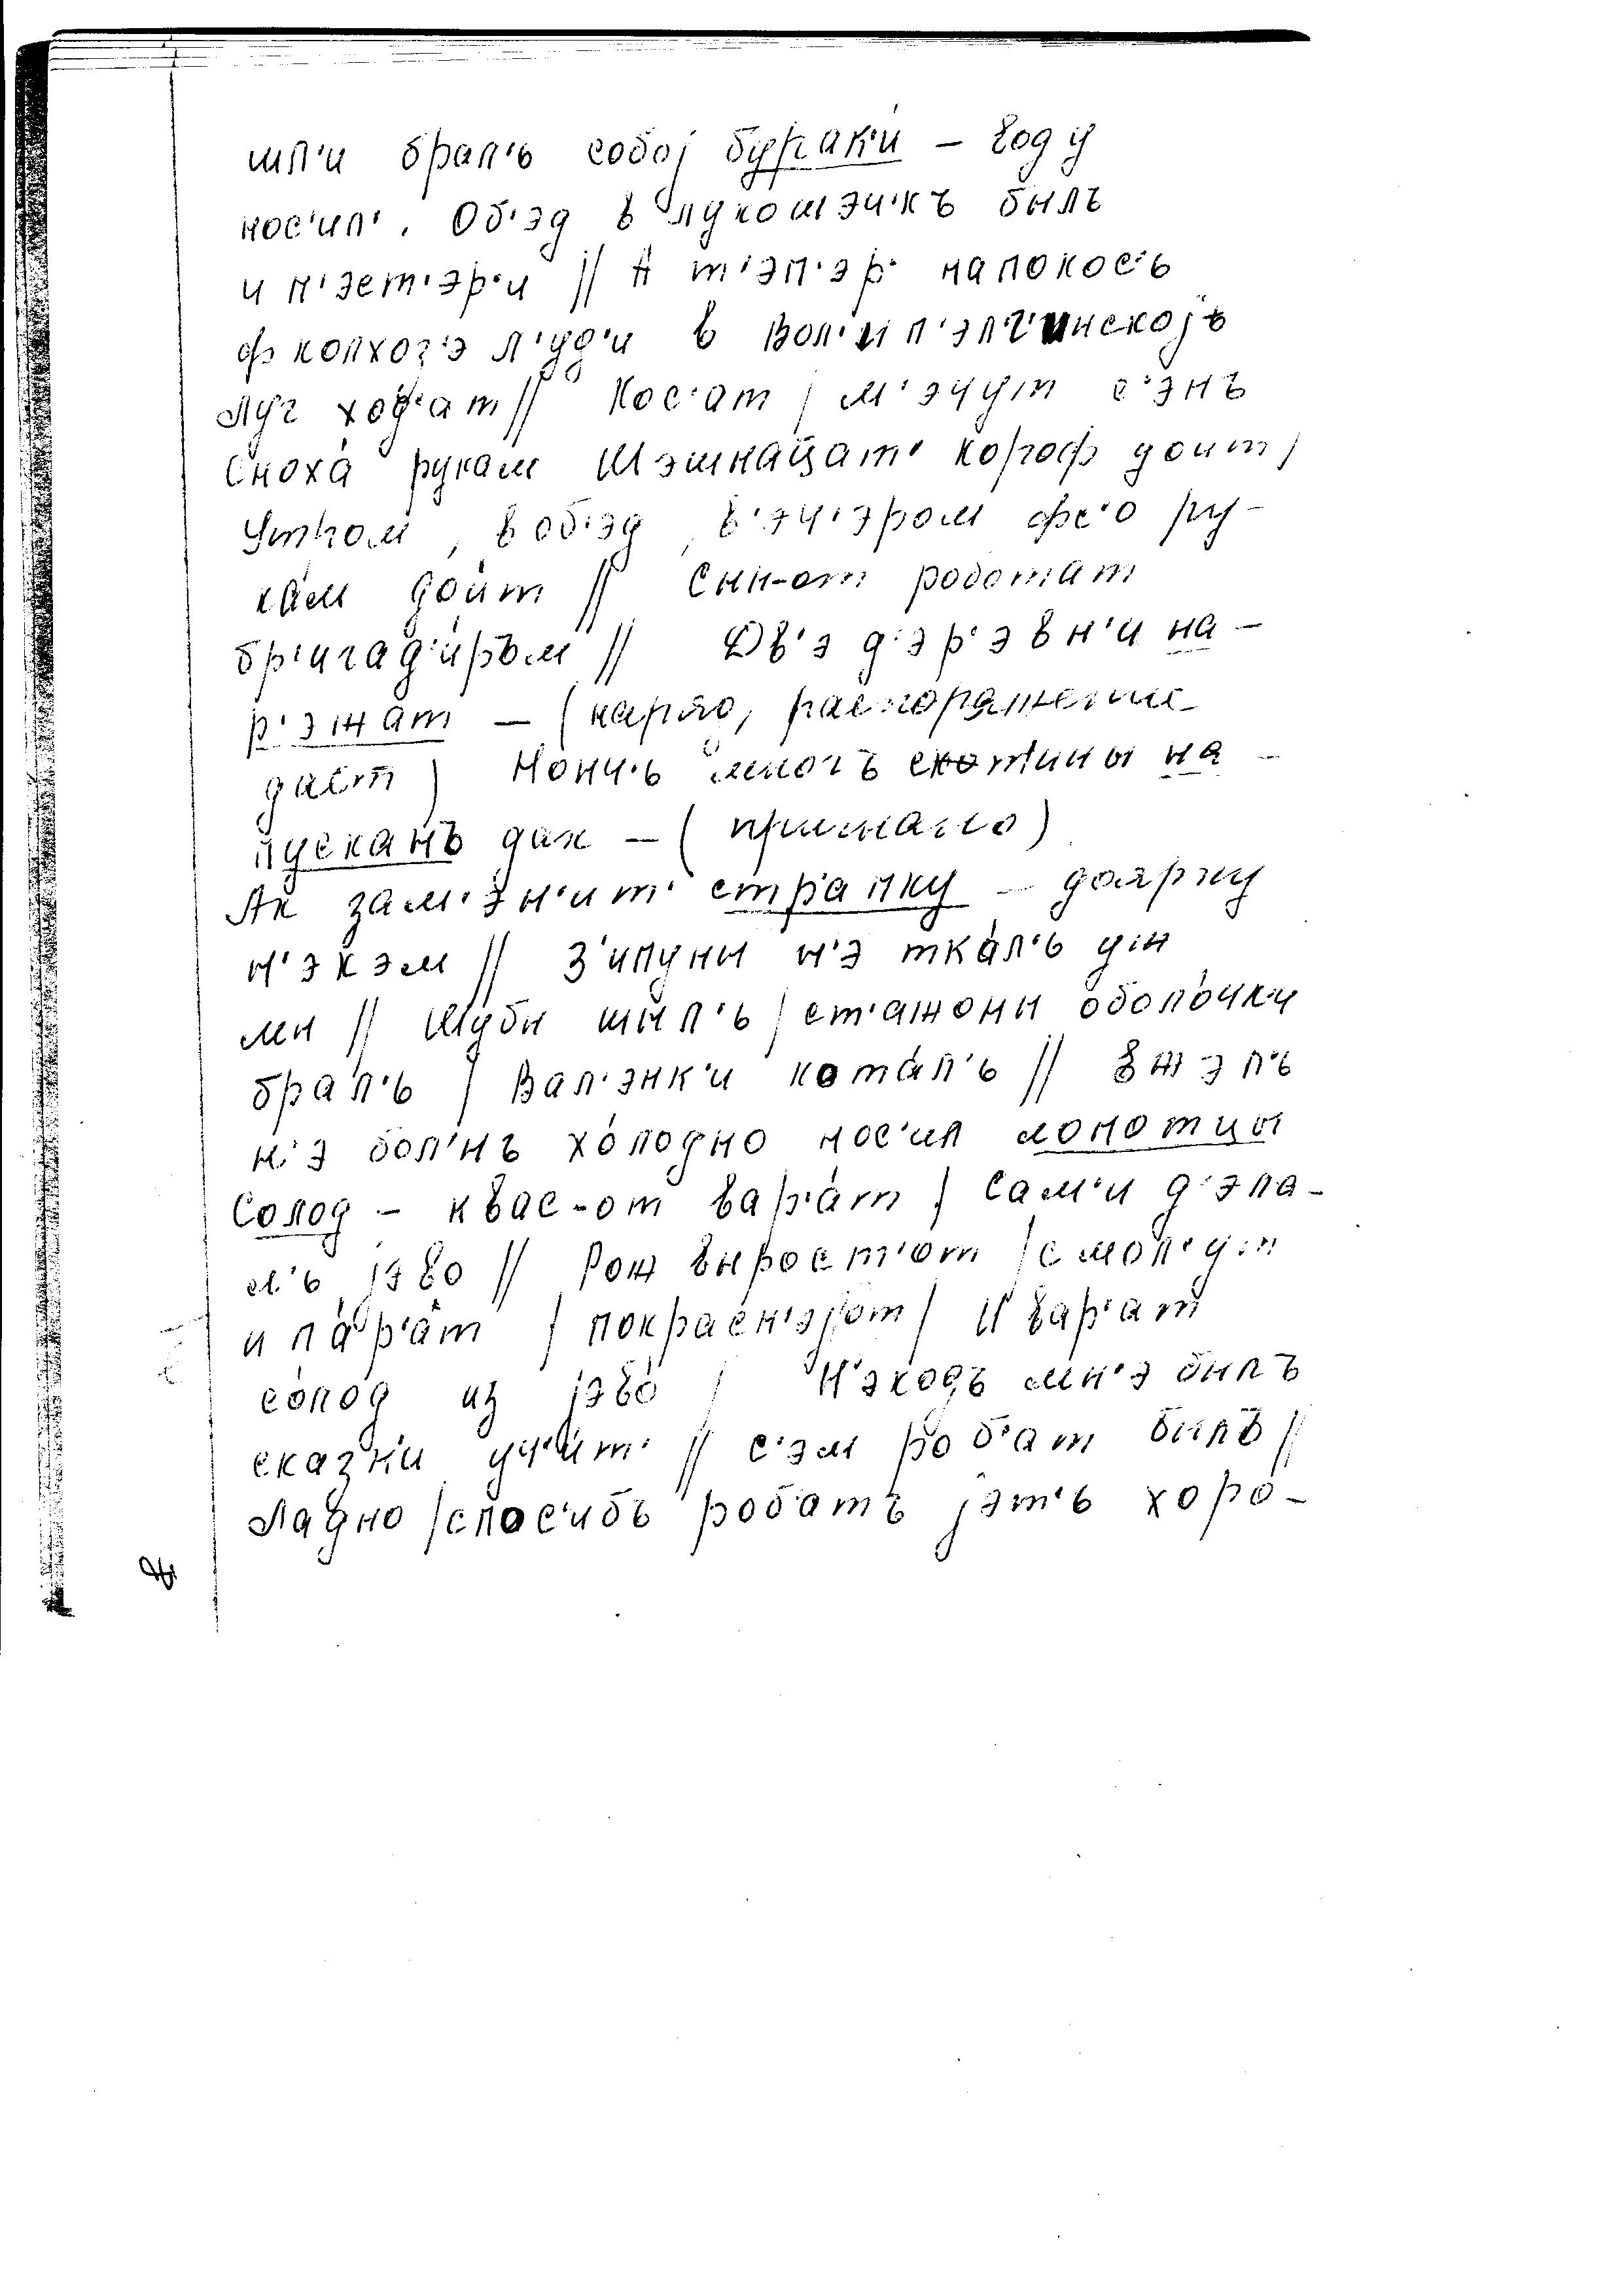 шл'и брал'ь собоj бураки́ – воду
нос'ил'. Об'эд в лукошэч'къ былъ
и н'эст'эр'и // А т'эп'эр' на покос'ь
ф колхоз'э л'уд'и в Вол'и п'элг'инскоjь
луг ход'ат // Кос'ат / м'эчут с'энъ
Сноха́ рукам шэшнаца́т' короф доит /
Утром, в об'эд, в'эч'эром фс'о ру-
ка́м дои́т // Сын-от роботат
бр'игад'и́ръм // Дв'э д'эр'эвн'и на-
р'эжа́т – (наряд, распоряжение
даёт) Нонч'ь многъ скотины на-
пусканъ дак –
Ак зам'эн'ит' стра́пку – доярку
н'экэм // З'ипуны н'э тка́л'ь уж
мы // Шубы шы́л'ь / ст'ажоны оболо́чки
бра́л'ь / Вал'энк'и кота́л'ь //
н'э бол'нъ хо́лодно нос'ил лопотцы
Солод – квас-от вар'а́т / Сам'и д'эла-
л'ь jэво // Рож выраст'от / смол'ут
и па́р'ат / покрасн'эjот / И вар'ат
со́лод из jэво́ / Н'экодъ мн'э былъ
сказки уч'и́т' // с'эм роб'ат былъ //
Ладно / спос'ибъ робатъ jэт'ь хоро́-